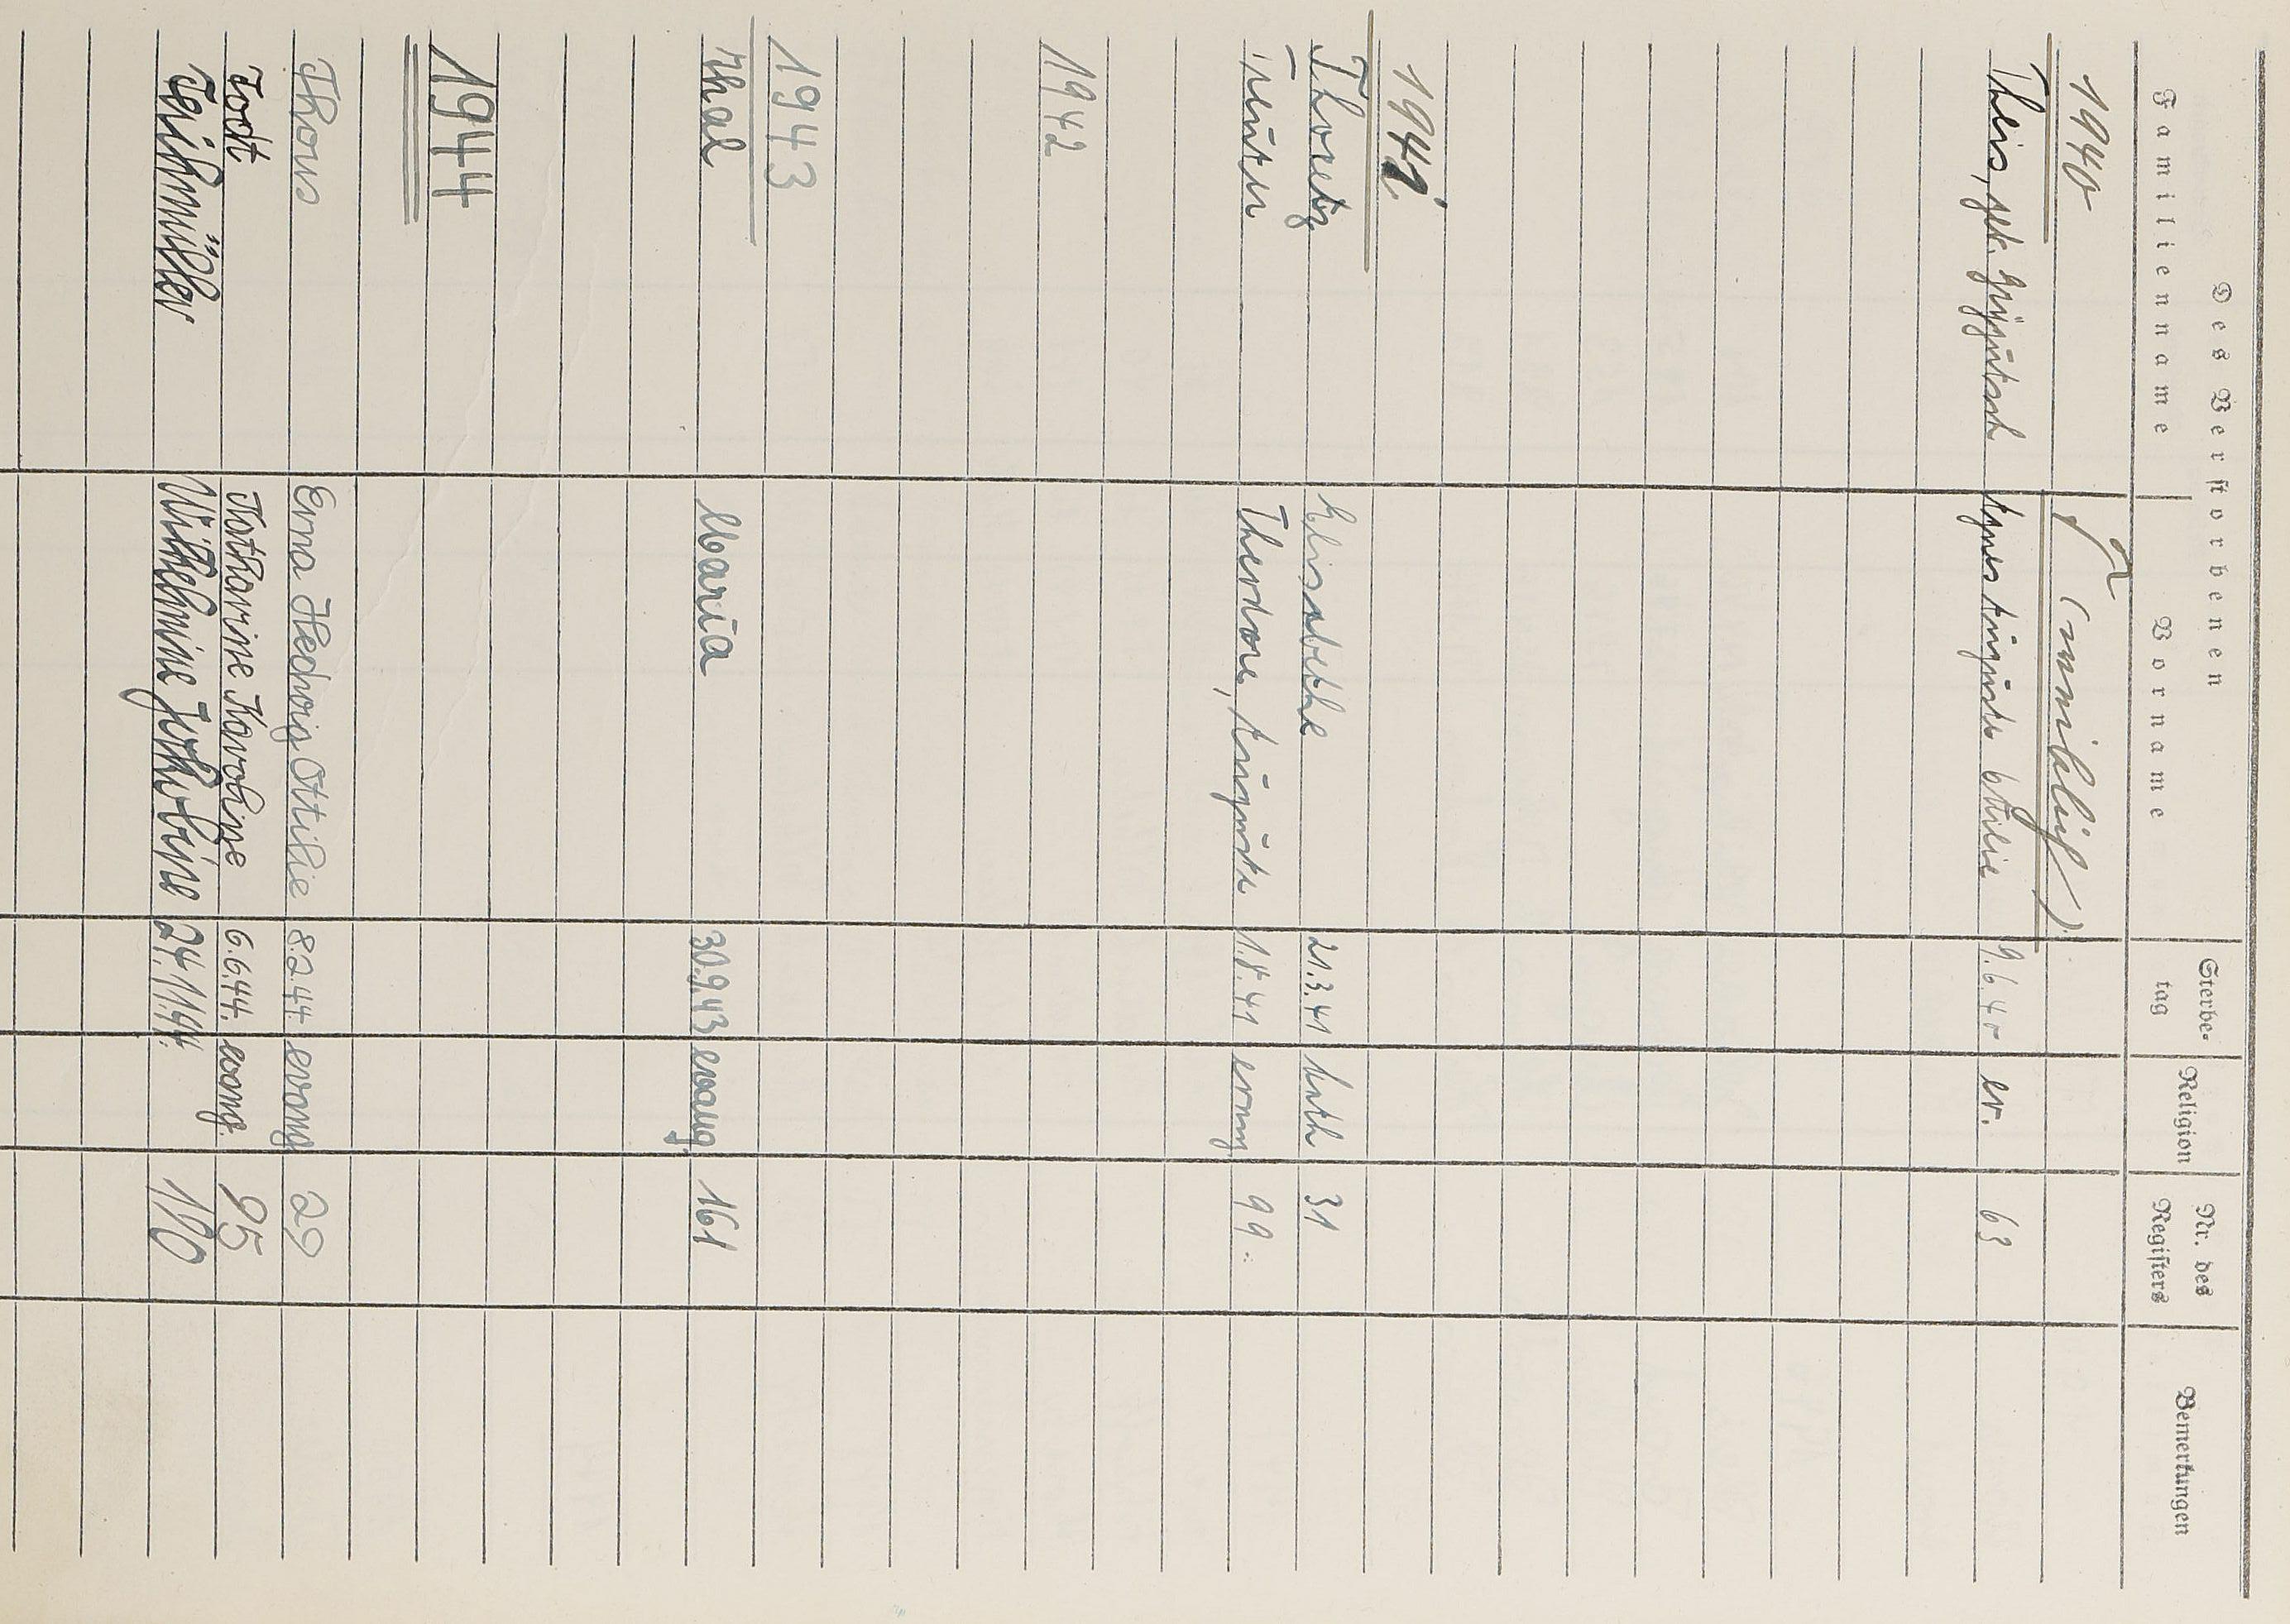 Des Verstorbenen
Familienname Vorname Sterbe- tag Religion Nr. des Registers Bemerkungen
1940 T (weiblich).
Theis, geb. Agnes Auguste Ottilie 9.6.40 ev. 63
1941.
Thoretz Elisabethe 21.3.41 kath 31
Theodore, Auguste 1.8.41 evang. 99.
1942
1943
Thal Maria 30.9.43 evang. 161
1944
Thous Erna Hedwig Ottilie 8.2.44. evang 29
Todt Katharine Karoline 6.6.44. evang. 95
Teichmüller Wilhelmine Jakobine 24.11.44. 190